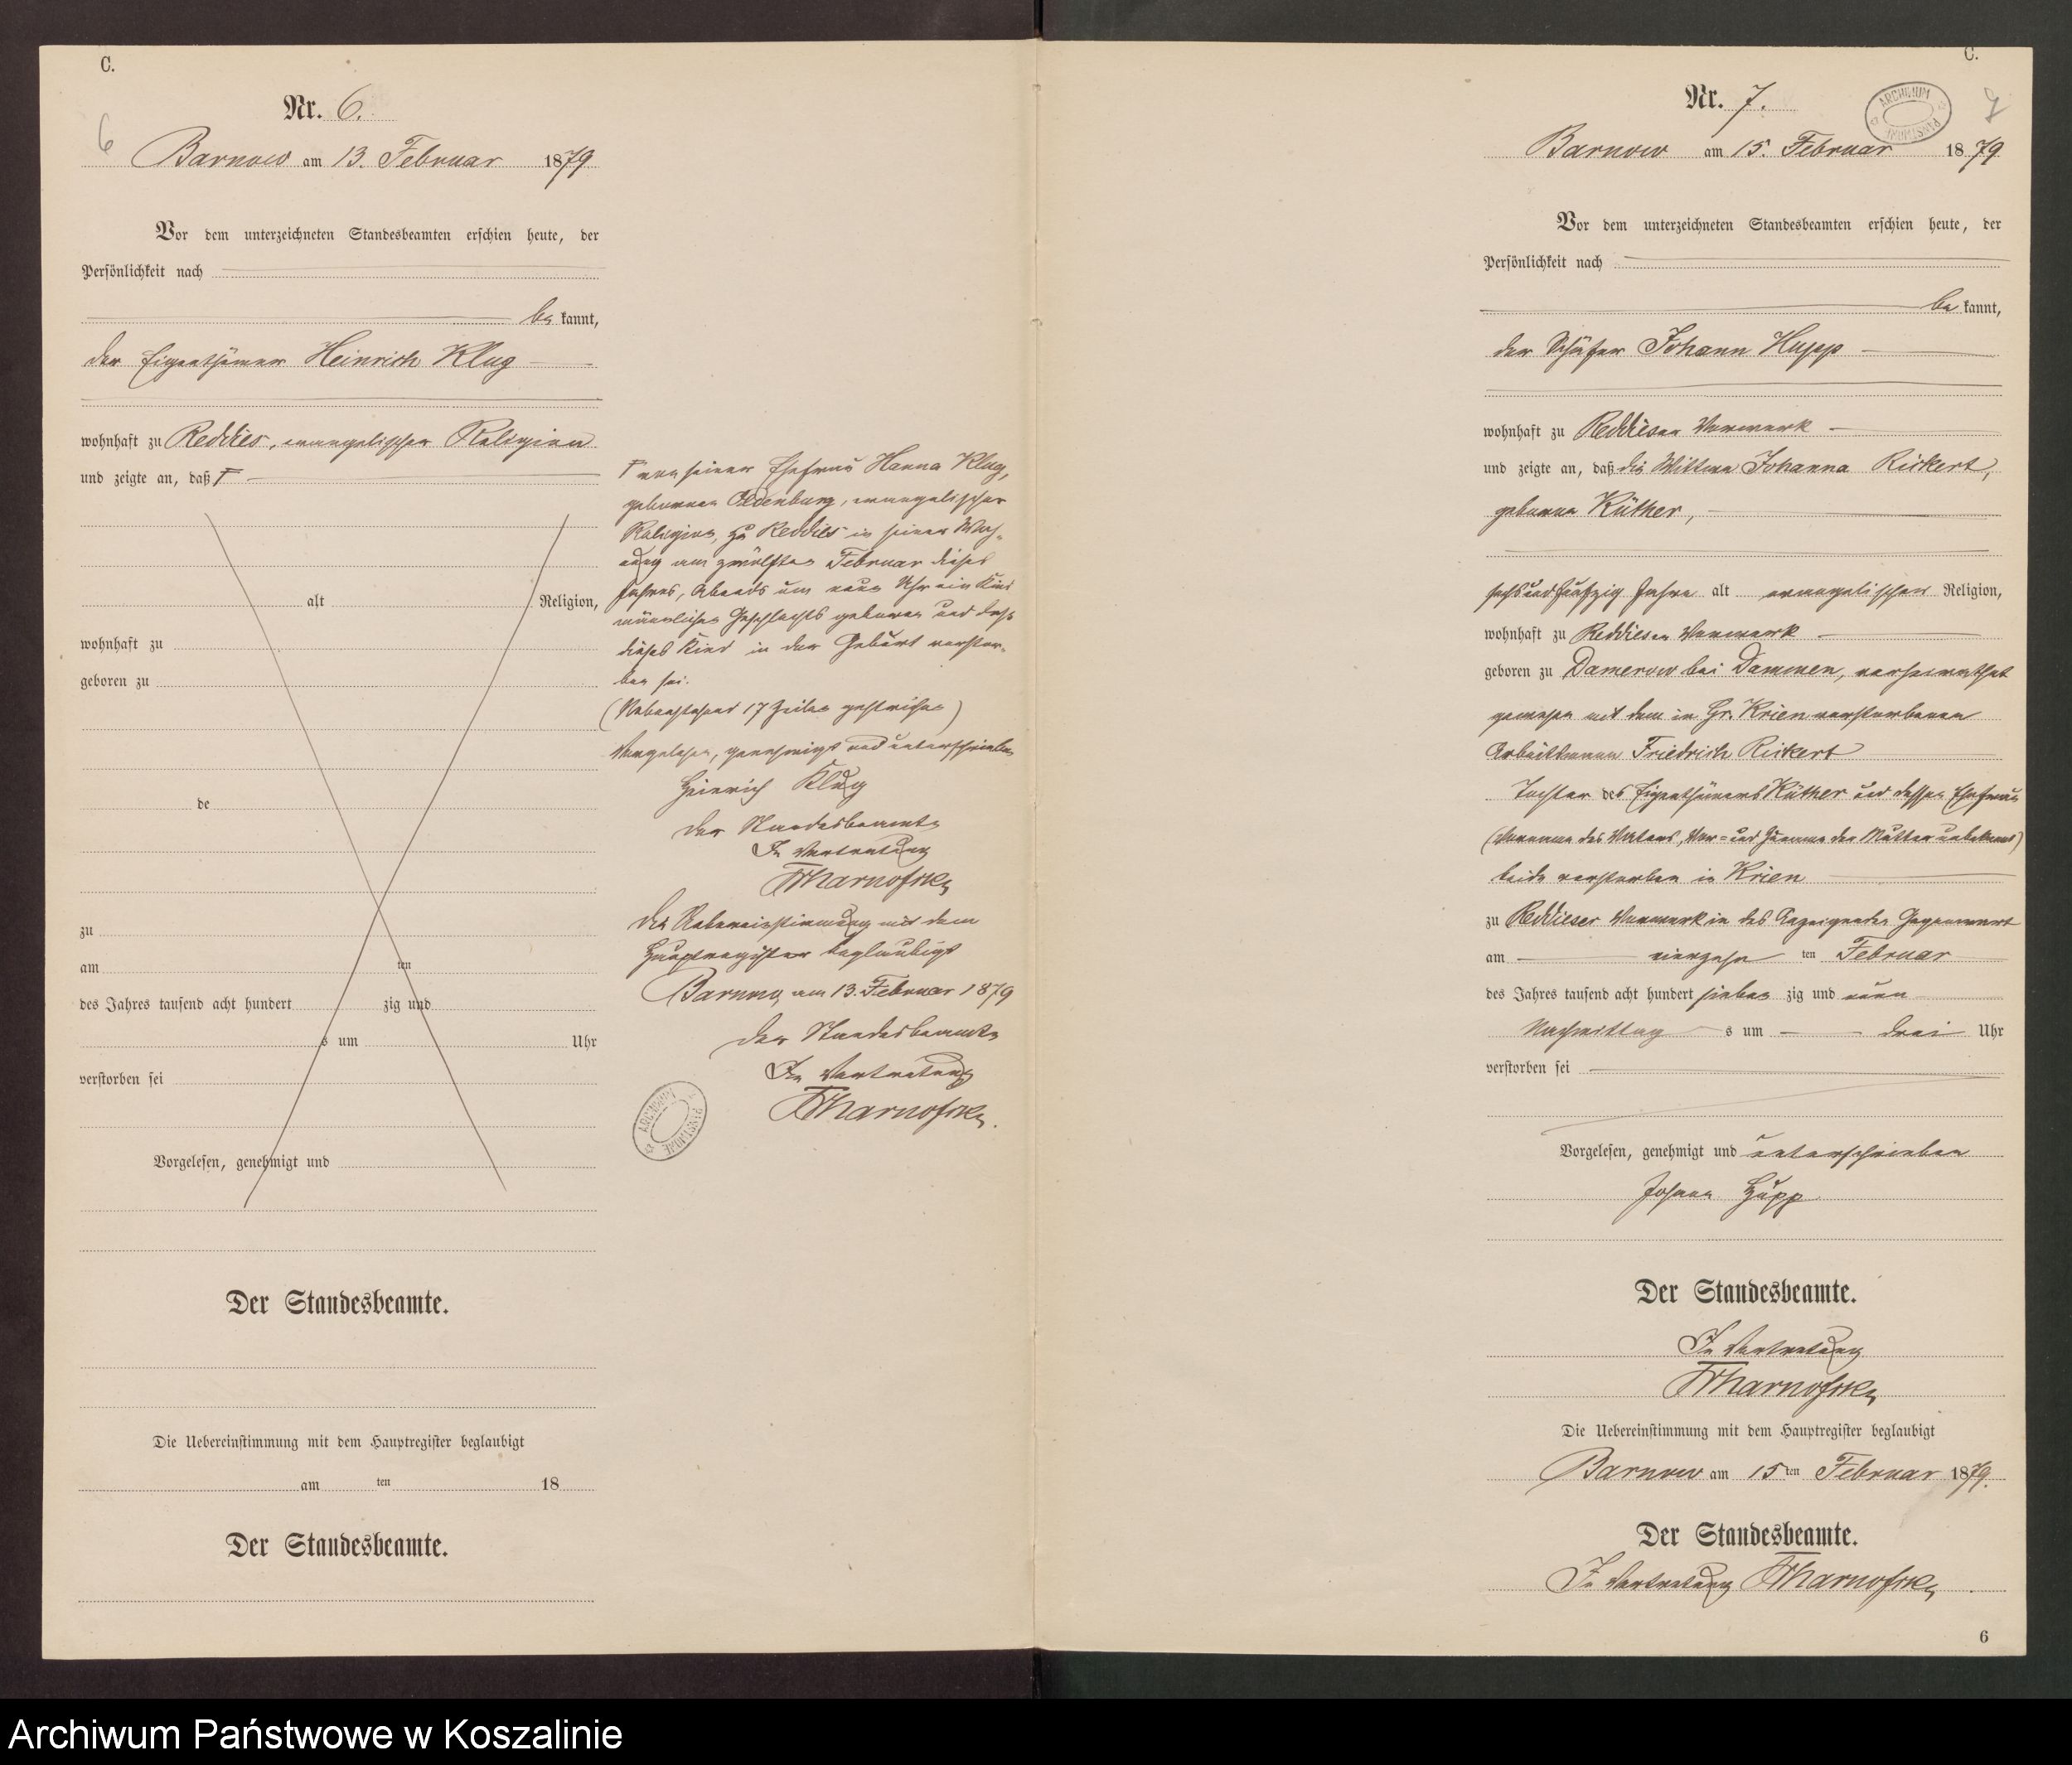 C.
Nr. 6.
6
Barnow am 13. Februar 1879
Vor dem unterzeichneten Standesbeamten erschien heute, der
Persönlichkeit nach
be kannt,
der Eigenthümer Heinrich Klug
wohnhaft zu Reddies, evangelischer Religion
und zeigte an, daß Γ
alt Religion,
wohnhaft zu
geboren zu
de
zu
am ten
des Jahres tausend acht hundert zig und
s um Uhr
verstorben sei
Vorgelesen, genehmigt und
Der Standesbeamte.
Die Uebereinstimmung mit dem Hauptregister beglaubigt
am ten 18
Der Standesbeamte.
Γ von seiner Ehefrau Hanna Klug,
geborenen Oldenburg, evangelischer
Religion, zu Reddies in seiner Woh-
nung am zwölften Februar dieses
Jahres, Abends um neun Uhr ein Kind
männlichen Geschlechts geboren und daß
dieses Kind in der Geburt verstor-
ben sei.
(Nebenstehend 17 Zeilen gestrichen)
Vorgelesen, genehmigt und unterschrieben
Heinrich Klug
Der Standesbeamte
In Vertretung
Die Uebereinstimmung mit dem
Hauptregister beglaubigt
Barnow, am 13. Februar 1879
Der Standesbeamte
In Vertretung
ARCHIWUM PAŃSTWOWE
C.
Nr. 7.
ARCHIWUM PAŃSTWOWE
7
Barnow am 15. Februar 1879
Vor dem unterzeichneten Standesbeamten erschien heute, der
Persönlichkeit nach
be kannt,
der Schäfer Johann Hupp
wohnhaft zu Reddieser Vorwerk
und zeigte an, daß die Wittwe Johanna Rickert,
geborene Küther,
sechsundfunfzig Jahre alt evangelischer Religion,
wohnhaft zu Reddieser Vorwerk
geboren zu Damerow bei Dammen, verheirathet
gewesen mit dem in Gr. Krien verstorbenen
Arbeitsmann Friedrich Rickert
Tochter des Eigenthümers Küther und dessen Ehefrau
(Vorname des Vaters, Vor- und Zuname der Mutter unbekannt)
beide verstorben in Krien
zu Reddieser Vorwerk in des Anzeigenden Gegenwart
am vierzehn ten Februar
des Jahres tausend acht hundert sieben zig und neun
Nachmittag s um drei Uhr
verstorben sei
Vorgelesen, genehmigt und unterschrieben
Johann Hupp
Der Standesbeamte.
In Vertretung
Die Uebereinstimmung mit dem Hauptregister beglaubigt
Barnow am 15 ten Februar 1879.
Der Standesbeamte.
In Vertretung
6
Archiwum Państwowe w Koszalinie